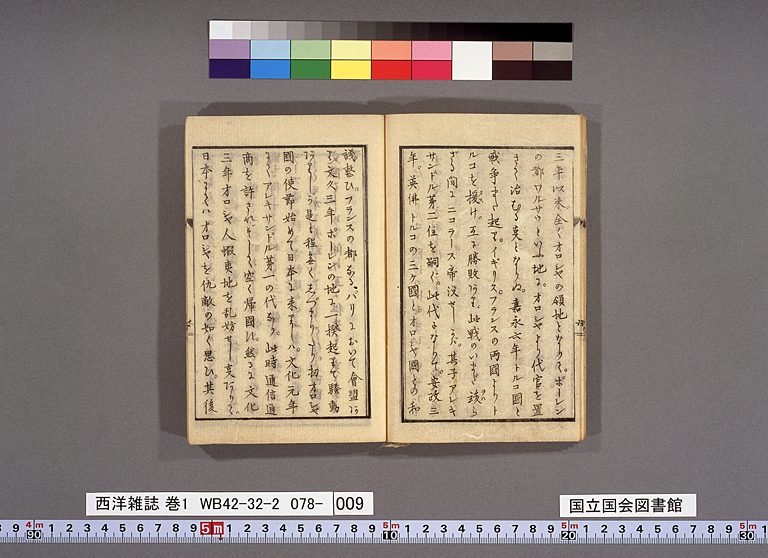 三年以来全くオロシヤの領地となりて。ポーレン
の都ワルサウといふ地に。オロシヤより代官を置
きて治むる事となりぬ。嘉永六年トルコ国と
戦争また起て。イギリス。フランスの両国よりト
ルコを援け。互に勝敗あり。此戦のいまだ終ら
ざる間にニコラース帝没せしかば。其子アレキ
サンドル第二位を嗣ぐ。此代となりて。安政三
年。英佛トルコの三ヶ國とオロシヤ國との和
議整ひ。フランスの都なる。パリにおいて會盟あ
り。文久三年。ポーレンの地に一揆起りて騒動
ありしが是も程なくしづまりたり。初オロシヤ
國の使節始めて日本に来りしハ。文化元年
にて。アレキサンドル第一の代なり。此時通信通
商を許されずして空く帰國せり。然るに文化
三年オロシヤ人蝦夷地を乱妨せし事ありて。
日本にてハオロシヤを仇敵の如く思ひ。其後
西洋雑誌 巻1 WB42-32-2 078- 009
国立国会図書館